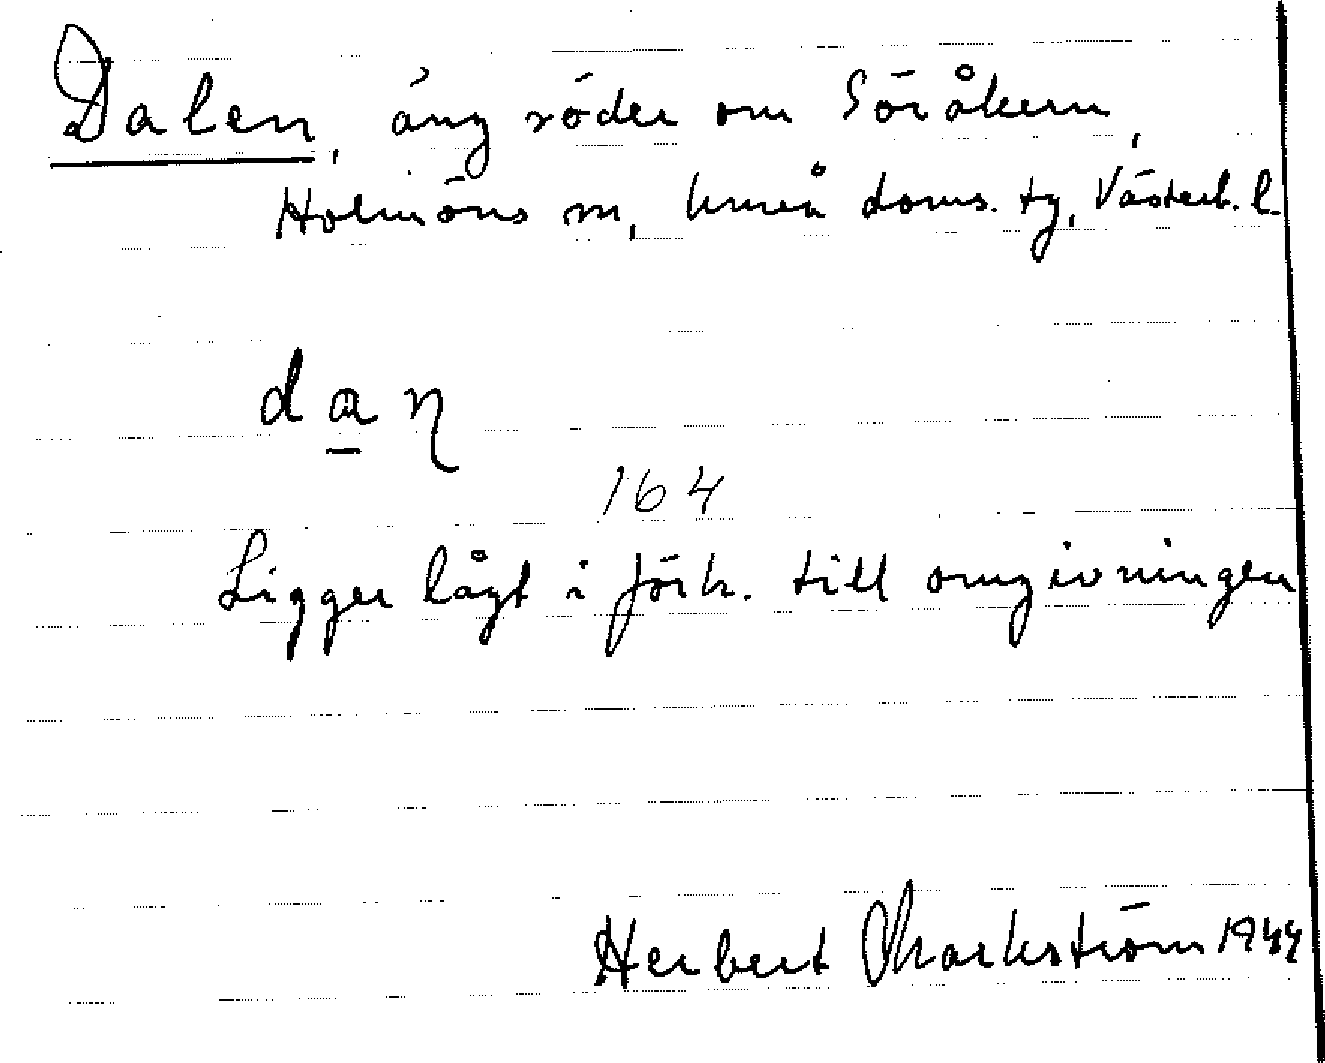 Dalen, äng söder om Söråkern,
Holmöns sn, Umeå doms. tg, Västerb. l.
dan̲
164
Ligger lågt i förh. till omgivningen
Herbert Markström 1944